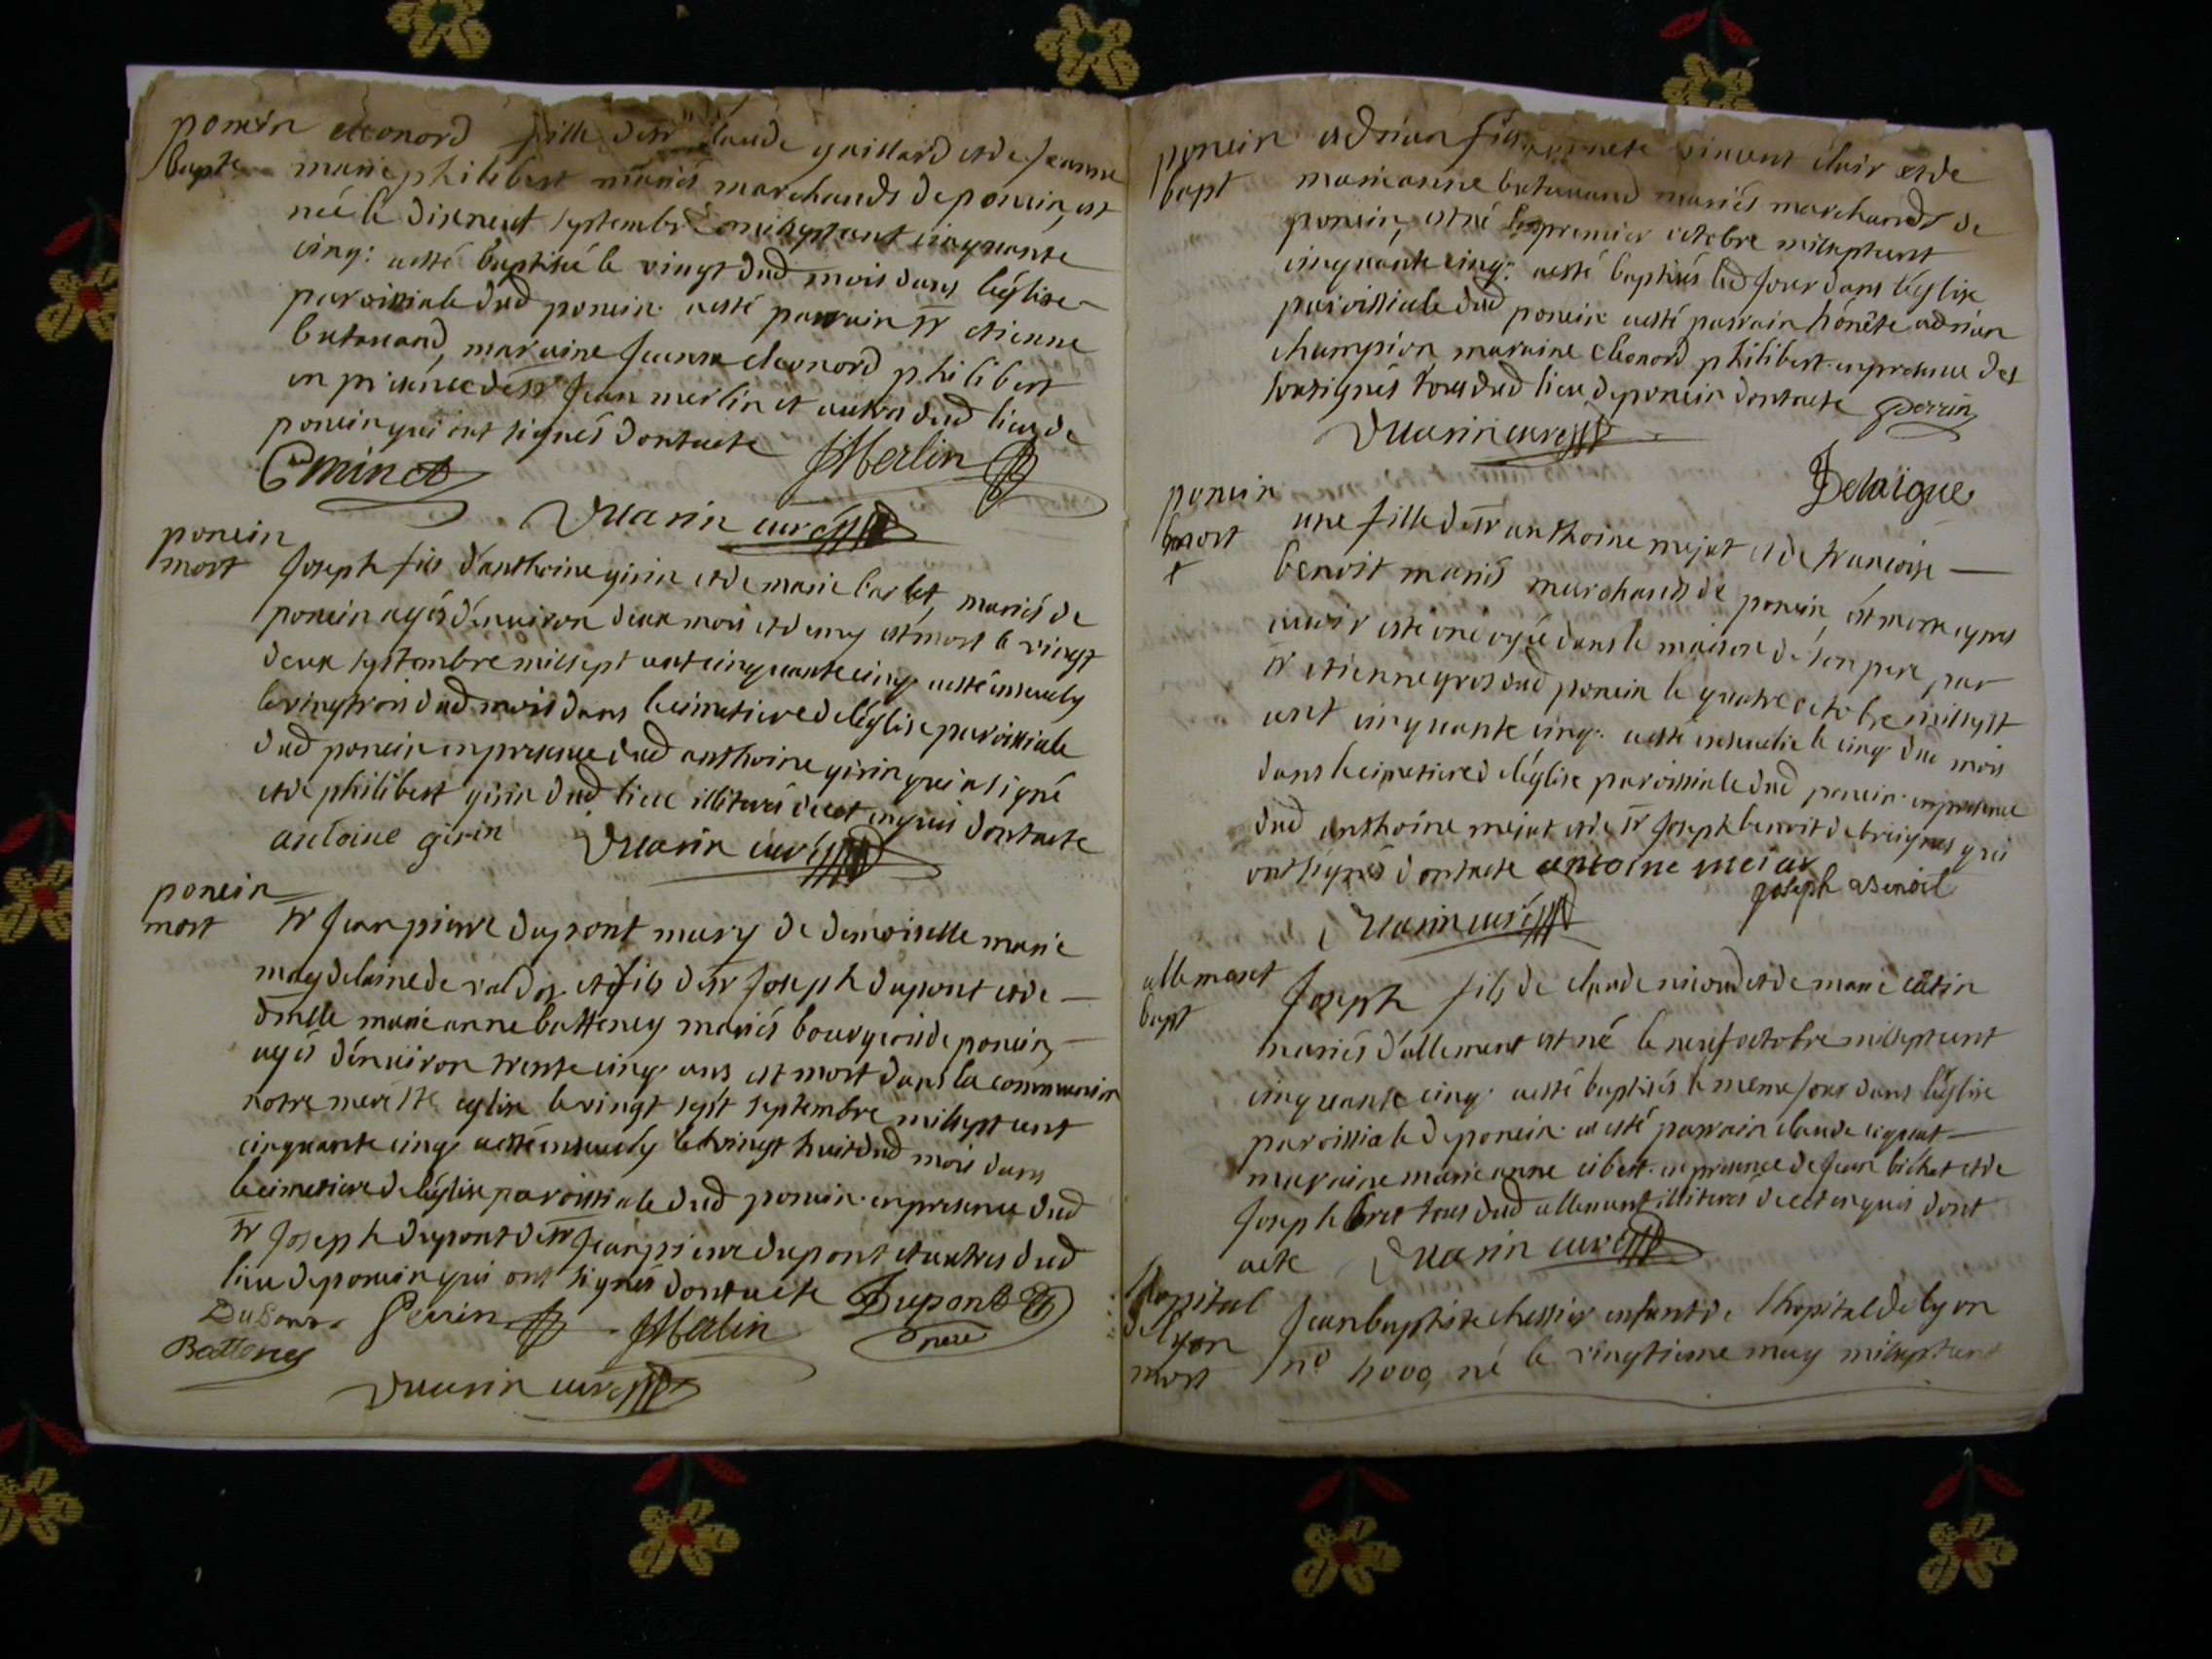 poncin eleonord fille de sr claude gaillard et de jeanne
bapt marie philibert mariés marchands de poncin, est
née le dixneuf septembre mil sept cent cinquante
cinq: a esté baptisé le vingt dud mois dans léglise
paroissiale dud poncin. a esté parrain sr etienne
butavand, maraine jeanne eleonord philibert
en presence de sr jean merlin et autres dud lieu de
poncin qui ont signés dont acte
Eminet JMerlin
Duarin curé
poncin
mort Joseph fils d'anthoine girin et de marie barbet, mariés de
poncin agés d'environ deux mois et demy est mort le vingt
deux septembre mil sept cent cinquante cinq. a esté ensevely
le vingt trois dud mois dans le cimetiere de léglise paroissiale
dud poncin en presence dud anthoine girin qui a signé
et de philibert girin dud lieu illiterés de ce enquis dont acte
antoine girin Duarin curé
poncin
mort sr jean pierre dupont mary de demoiselle marie
magdelaine de et fils de sr joseph dupont et de
dmlle marie anne batteney mariés bourgeois de poncin,
agés d'environ trente cinq. ans, est mort dans la communion
notre mere ste eglise le vingt sept septembre mil sept cent
cinquante cinq, a esté ensevely le vingt huit dud mois dans
le cimetiere de léglise paroissiale dud poncin. en presence dud
sr joseph dupont de sr jean pierre dupont et autres dud
lieu de poncin qui ont signés dont acte Dupont
pere
Dupont Perrin JMerlin
Batteney
Duarin curé
poncin adrian fils vincent clair et de
bapt marianne butavand mariés marchands de
poncin, est né le premier octobre mil sept cent
cinquante cinq: a esté baptisés led jour dans léglise
paroissiale dud poncin a esté parrain honête adrian
champion maraine eleonord philibert. en presence des
sousignés tous dud lieu de poncin dont acte Perrin
Duarin curé
Delaigue
poncin
mort une fille de sr anthoine mejat et de francoise
benoit mariés marchands de poncin, est morte apres
avoir esté ondoyée dans la maison de son pere, par
sr etienne gros dud poncin le quatre octobre mil sept
cent cinquante cinq. a esté ensevelie le cinq dud mois
dans le cimetiere de léglise paroissiale dud poncin. en presence
dud anthoine mejat et de sr joseph benoit de qui
ont signés dont acte antoine meiat
joseph Benoit
Duarin curé
allement
bapt Joseph fils de claude nicoud et de marie
mariés d'allement est né le neuf octobre mil sept cent
cinquante cinq. a esté baptisés le meme jour dans léglise
paroissiale de poncin. a esté parrain claude
maraine marie anne en presence de jean bichat et de
joseph bret tous dud allement illiterés de ce enquis dont
acte Duarin curé
l'hopital
de lyon
mort Jean baptiste chessier enfant de l'hopital de lyon
no né le vingtieme may mil sept cent